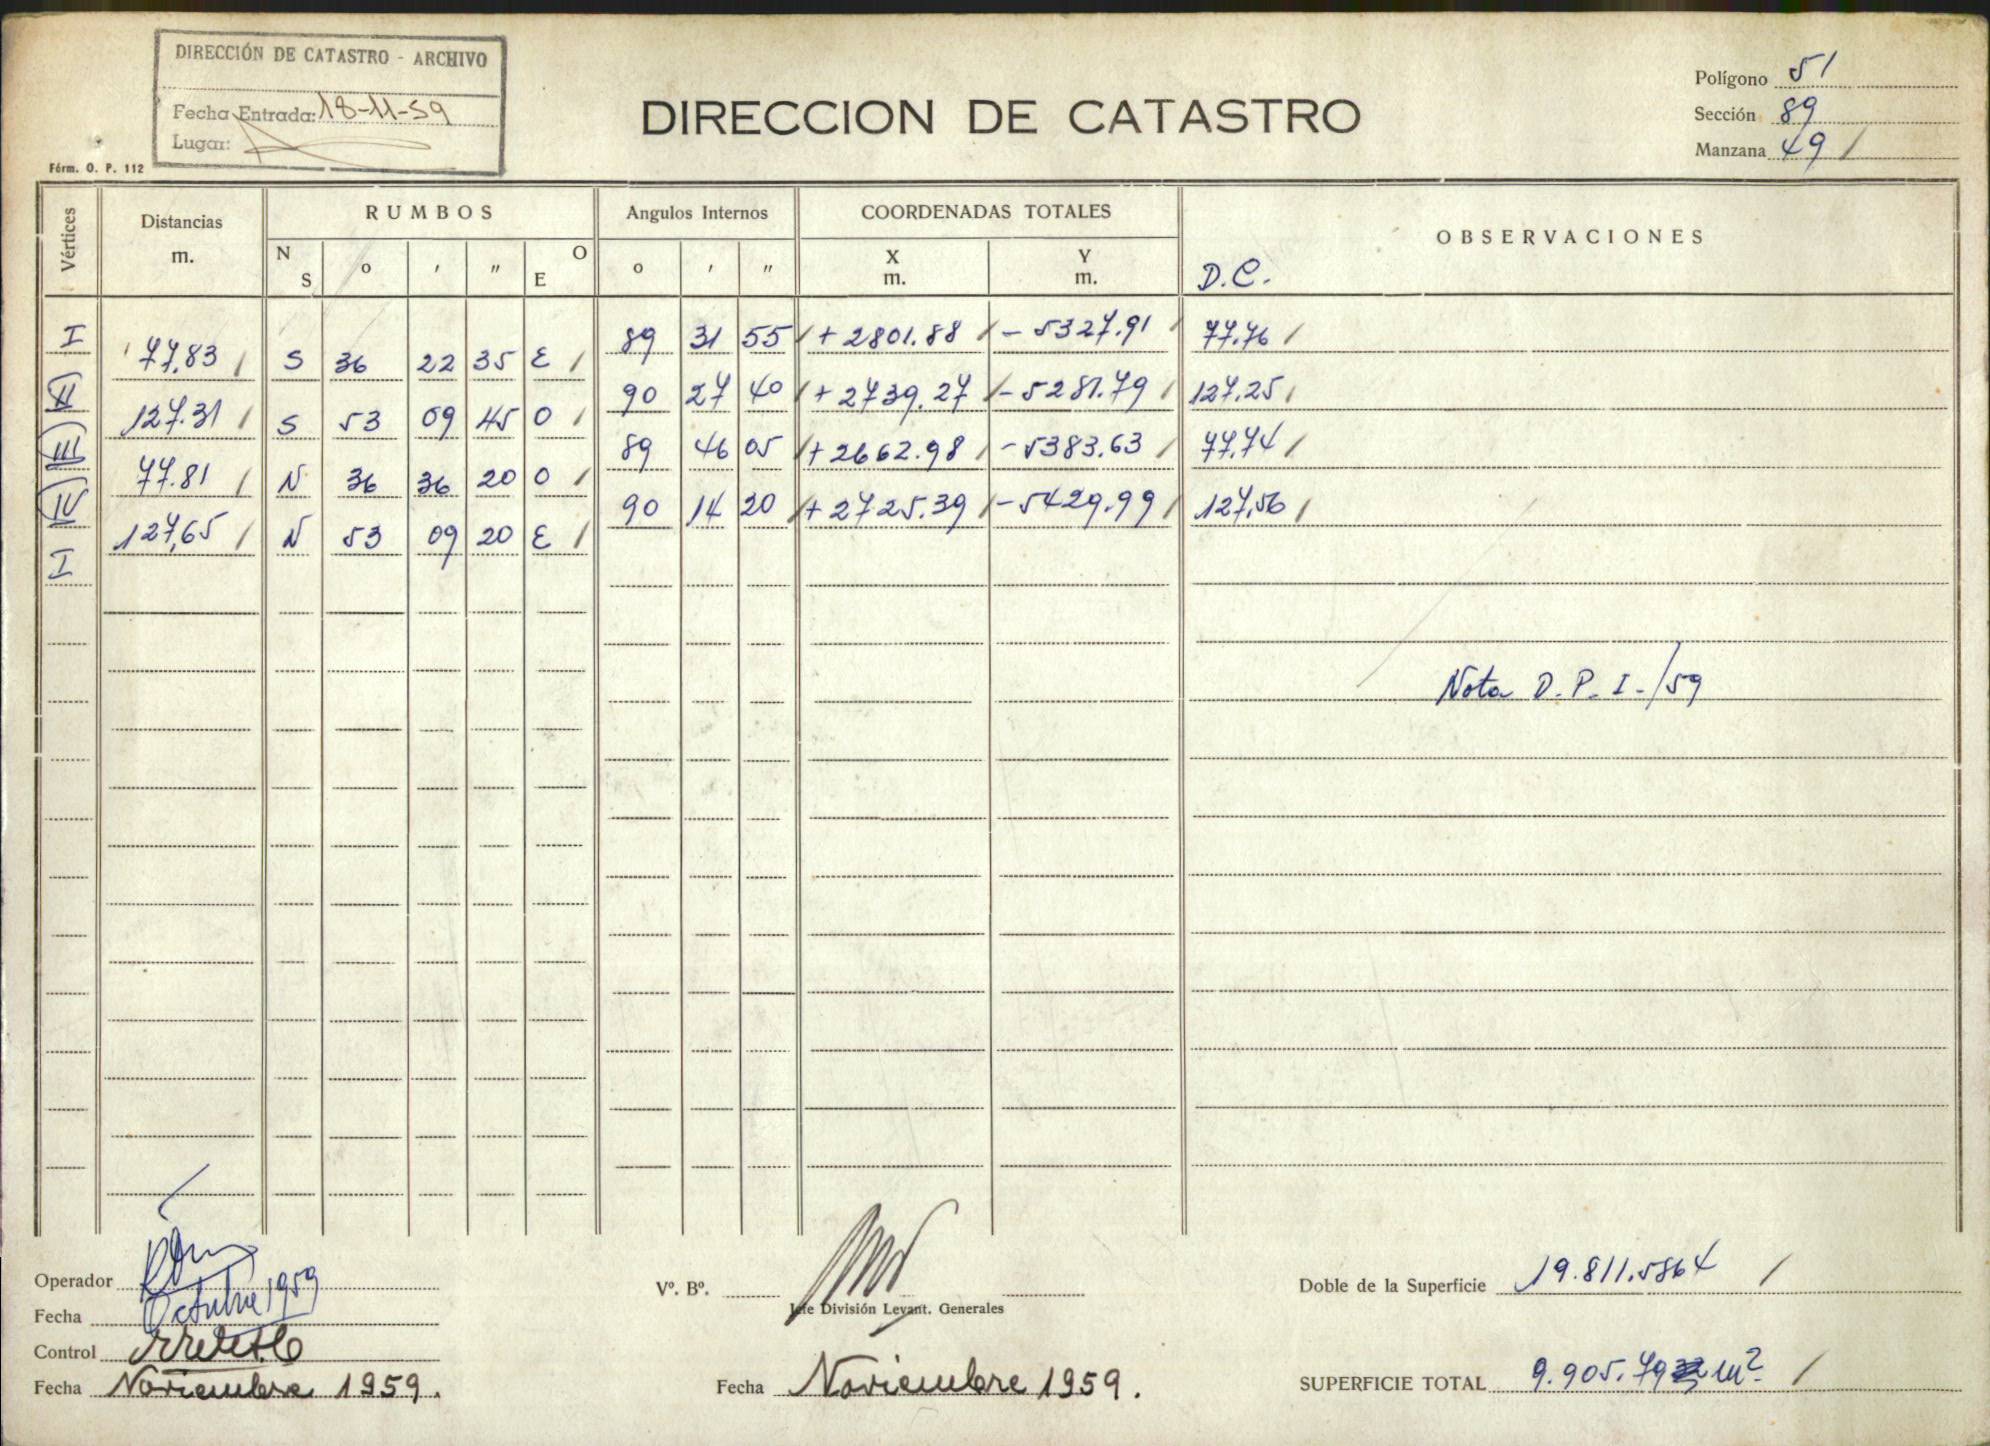 DIRECCIÓN DE CATASTRO - ARCHIVO
Fecha Entrada: 18-11-59
Lugar:
Fórm. O. P. 112
DIRECCION DE CATASTRO
Polígono 51
Sección 89
Manzana 49 /
Vértices
Distancias
m.
RUMBOS
N
S
o ' "
O
E
Angulos Internos
o ' "
COORDENADAS TOTALES
X
m.
Y
m.
OBSERVACIONES
D.C.
I 89 31 55 / + 2801.88 / - 5327.91 / 77.76 /
77,83 / S 36 22 35 E /
II 90 27 40 / + 2739.27 / - 5281.79 / 127.25 /
127.31 / S 53 09 45 O /
III 89 46 05 / + 2662.98 / - 5383.63 / 77.74 /
77.81 / N 36 36 20 O /
IV 90 14 20 / + 2725.39 / - 5429.99 / 127,56 /
127,65 / N 53 09 20 E /
I
Nota D. P. I - /59
Operador
Fecha Octubre 1959
Control
Fecha Noviembre 1959.
Vº. Bº.
Jefe División Levant. Generales
Fecha Noviembre 1959.
Doble de la Superficie 19.811.5864 /
SUPERFICIE TOTAL 9.905.79 m² /